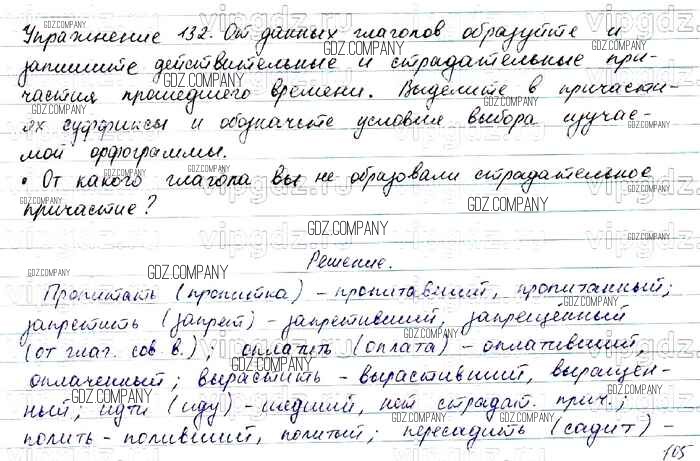 Упражнение 132. От данных глаголов образуйте и
запишите действительные и страдательные при-
частия прошедшего времени. Выделите в причасти-
ях суффиксы и обозначьте условия выбора изучае-
мой орфограммы.
• От какого глагола вы не образовали страдательное
причастие?
Решение.
Пропитать (пропитка) – пропитавший, пропитанный;
запретить (запрет) – запретивший, запрещённый
(от глаг. сов. в.); оплатить (оплата) – оплативший,
оплаченный; вырастить – вырастивший, выращен-
ный; идти (иду) – шедший, нет страдат. прич.;
полить – поливший, политый; пересадить (садит) –
105
GDZ.COMPANY
vipgdz.ru